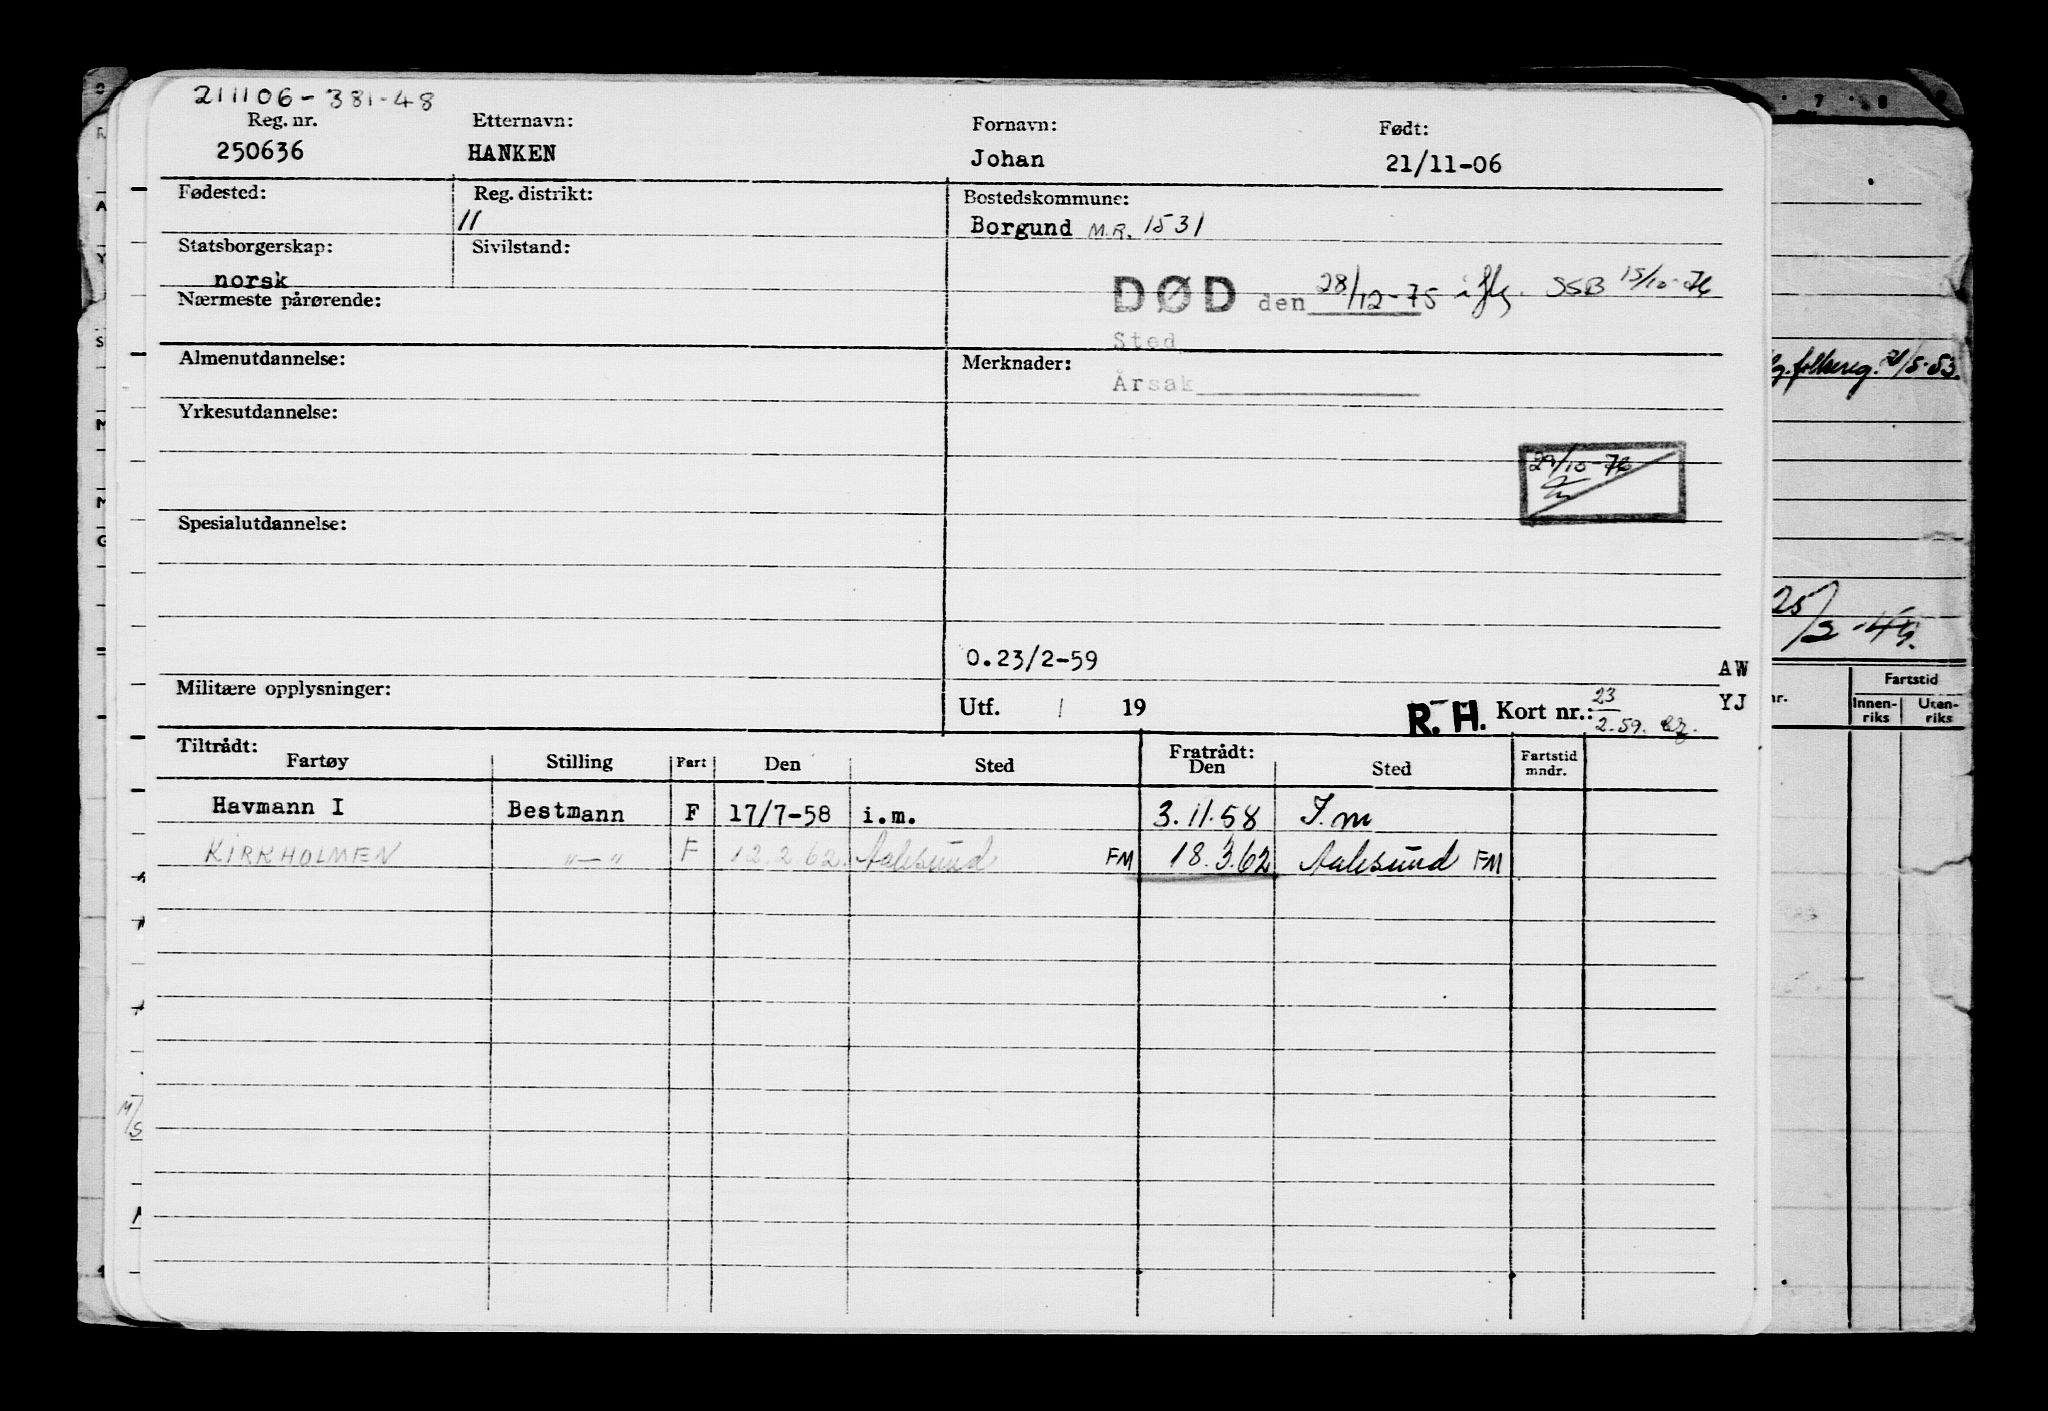 211106-381-48
Reg. nr. Etternavn: Fornavn: Født:
250636 HANKEN Johan 21/11-06
Fødested: Reg. distrikt: Bostedskommune:
11 Borgund M.R. 1531
Statsborgerskap: Sivilstand:
norsk
DØD den 28/12-75 iflg. SSB 15/10-76
Nærmeste pårørende:
Sted
Almenutdannelse: Merknader:
Årsak
folkereg. 21/5-53.
Yrkesutdannelse:
29/10-76
Spesialutdannelse:
25/2-49.
O.23/2-59
AW
Militære opplysninger:
Utf. / 19 R.H. Kort nr.: 23/2.59. YJ
Fartstid
Innenriks Utenriks
Tiltrådt: Fratrådt:
Fartøy Stilling Fart Den Sted Den Sted Fartstid mndr.
Havmann I Bestmann F 17/7-58 i.m. 3.11.58 I.m
KIRKHOLMEN "—" F 12.2.62. Aalesund FM 18.3.62 Aalesund FM
M/S